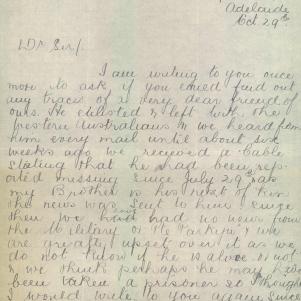 Adelaide
Oct 29th
Dr Sir/
I am writing to you once
more to ask if you could find out
any traces of a very dear friend of
ours. He enlisted & left with the
Western Australians & we heard from
him every mail until about six
weeks ago we received a cable
stating that he had been rep-
orted missing since July 29th, as
my Brother is his next of kin
the news was sent to him since
then we have had no news from
the Military or the &
are greatly upset over it as we
do not know if he is alive or not
& we think perhaps he may have
been taken a prisoner so thought
I would write to you again